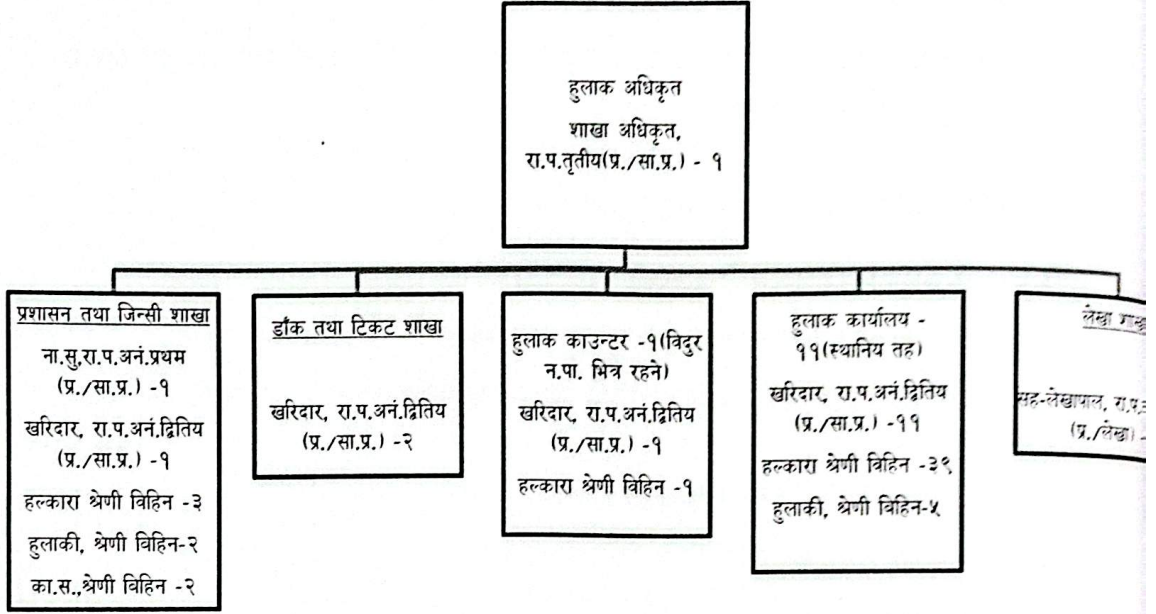 हुलाक अधिकृत
शाखा अधिकृत,
रा.प.तृतीय(प्र./सा.प्र.) - १
प्रशासन तथा जिन्सी शाखा
ना.सु,रा.प.अनं.प्रथम
(प्र./सा.प्र.) -१
खरिदार, रा.प.अनं.द्वितिय
(प्र./सा.प्र.) -१
हल्कारा श्रेणी विहिन -३
हुलाकी, श्रेणी विहिन-२
का.स.,श्रेणी विहिन -२
डाँक तथा टिकट शाखा
खरिदार, रा.प.अनं.द्वितिय
(प्र./सा.प्र.) -२
हुलाक काउन्टर -१(विदुर
न.पा. भित्र रहने)
खरिदार, रा.प.अनं.द्वितिय
(प्र./सा.प्र.) -१
हल्कारा श्रेणी विहिन -१
हुलाक कार्यालय -
११(स्थानिय तह)
खरिदार, रा.प.अनं.द्वितिय
(प्र./सा.प्र.) -११
हल्कारा श्रेणी विहिन -३९
हुलाकी, श्रेणी विहिन-५
लेखा
सह-लेखापाल, रा.प.
(प्र./लेखा) -